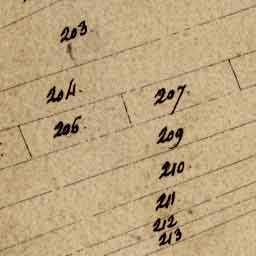 203
204.
207.
206.
209
210.
211
212
213